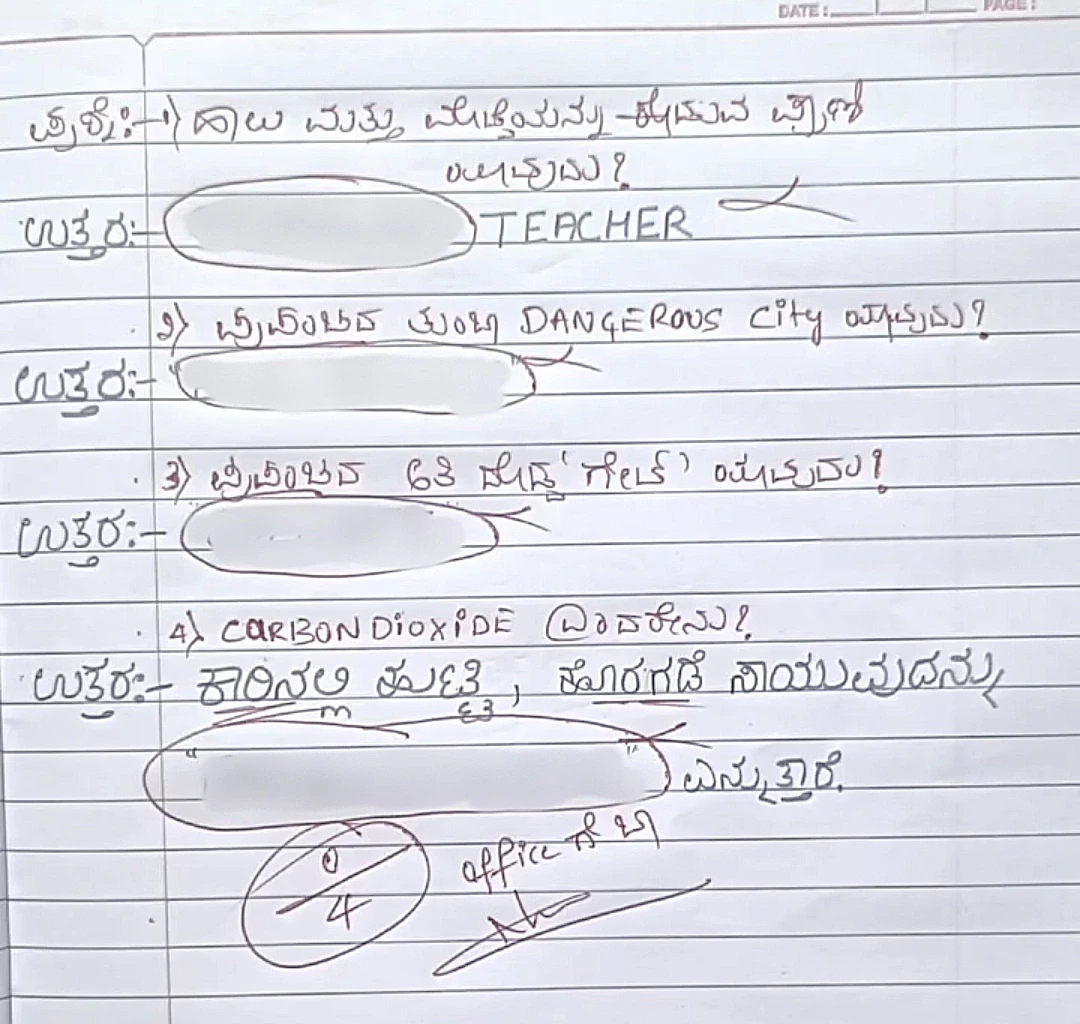 DATE: PAGE:
ಪ್ರಶ್ನೆ:-1) ಹಾಲು ಮತ್ತು ಮೊಟ್ಟೆಯನ್ನು ಕೊಡುವ ಪ್ರಾಣಿ
ಯಾವುದು?
ಉತ್ತರ:- TEACHER
2) ಪ್ರಪಂಚದ ತುಂಬಾ DANGEROUS City ಯಾವುದು?
ಉತ್ತರ:-
3) ಪ್ರಪಂಚದ ಅತಿ ದೊಡ್ಡ 'ಗೇಟ್' ಯಾವುದು?
ಉತ್ತರ:-
4) CARBONDIOXIDE ಎಂದರೇನು?
ಉತ್ತರ:- ಕಾರಿನಲ್ಲಿ ಕುಳಿತು, ಹೊರಗಡೆ ಸಾಯುವುದನ್ನು
" " ಎನ್ನುತ್ತಾರೆ.
0/4
office ಗೆ ಬಾ